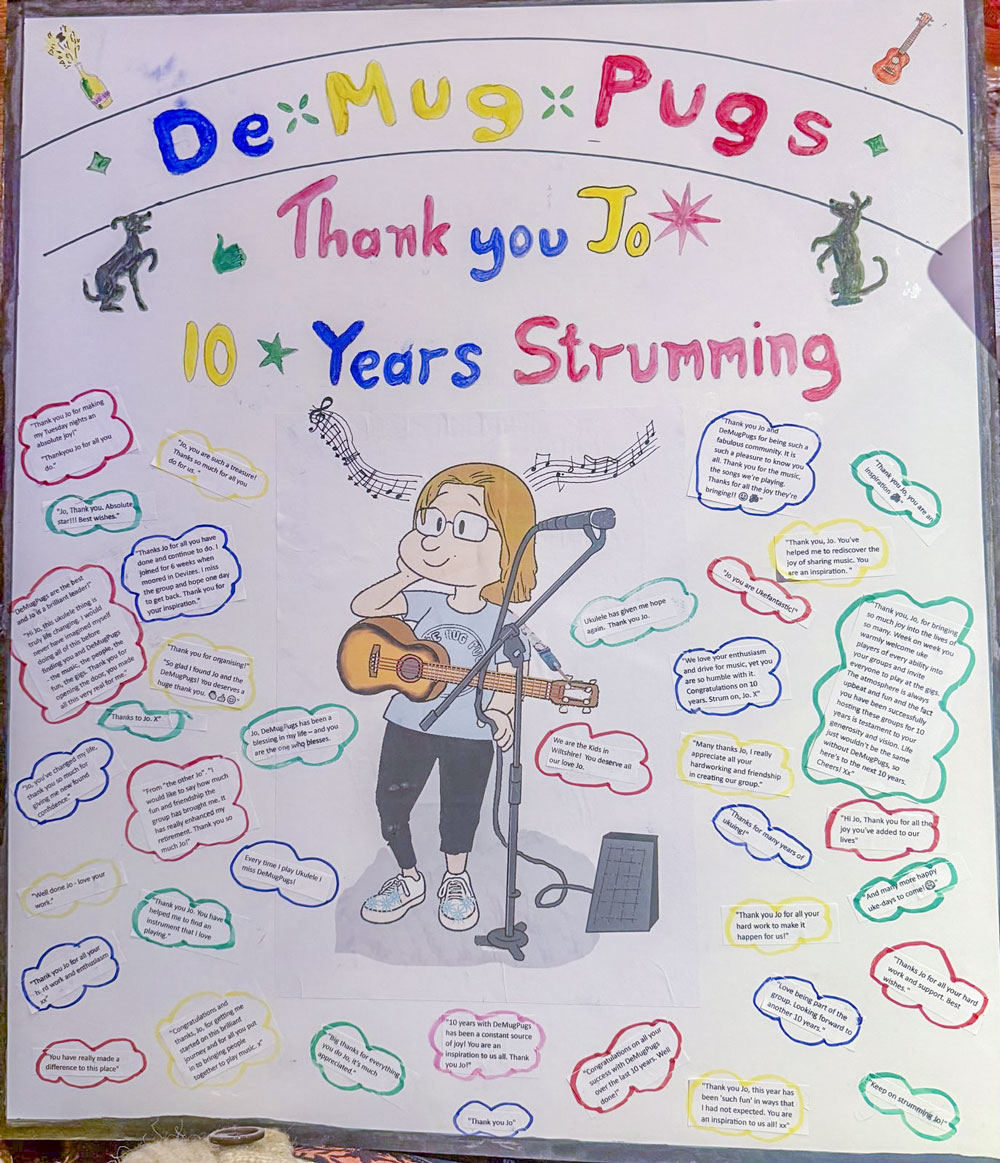 De Mug Pugs
Thank you Jo
10 Years Strumming
"Thank you Jo for making
my Tuesday nights an
absolute joy!"
"Thankyou Jo for all you
do."
"Jo, you are such a treasure!
Thanks so much for all you
do for us. "
"Jo, Thank you. Absolute
star!!! Best wishes."
"Thanks for all you have
done and continue to do. I
joined for 6 weeks when
moored in Devizes. I miss
the group and hope one day
to get back. Thank you for
your inspiration."
"DeMugPugs are the best
and Jo is a brilliant leader!"
"Hi Jo, this ukulele thing is
truly life changing. I would
never have imagined myself
doing all of this before
finding you and DeMugPugs
- the music, the people, the
fun, the gigs. Thank you for
opening the door, you made
all this very real for me."
"Thank you for organising!"
"So glad I found Jo and the
DeMugPugs! You deserves a
huge thank you.
Thanks to Jo. X"
Jo, DeMugPugs has been a
blessing in my life – and you
are the one who blesses.
"Jo, you've changed my life,
thank you so much for
giving me new found
confidence."
"From "the other Jo". "I
would like to say how much
fun and friendship the
group has brought me. It
has really enhanced my
retirement. Thank you so
much Jo!"
Every time I play Ukulele I
miss DeMugPugs!
"Well done Jo - love your
work."
"Thank you Jo. You have
helped me to find an
instrument that I love
playing."
"Thank you Jo for all your
hard work and enthusiasm
xx"
"Congratulations and
thanks, Jo, for getting me
started on this brilliant
journey and for all you put
in to bringing people
together to play music. x"
"You have really made a
difference to this place"
"Big thanks for everything
you do Jo, it's much
appreciated."
"10 years with DeMugPugs
has been a constant source
of joy! You are an
inspiration to us all. Thank
you Jo!"
"Thank you Jo"
"Congratulations on all your
success with DeMugPugs
over the last 10 years. Well
done!"
Thank you Jo and
DeMugPugs for being such a
fabulous community. It is
such a pleasure to know you
all. Thank you for the music,
the songs we're playing.
Thanks for all the joy they're
bringing!!
"Thank you Jo, you are an
inspiration
"Thank you, Jo. You've
helped me to rediscover the
joy of sharing music. You
are an inspiration. "
"Jo you are Ukefantastic!"
Ukulele has given me hope
again. Thank you Jo.
"We love your enthusiasm
and drive for music, yet you
are so humble with it.
Congratulations on 10
years. Strum on, Jo. X"
"Thank you, Jo, for bringing
so much joy into the lives of
so many. Week on week you
warmly welcome uke
players of every ability into
your groups and invite
everyone to play at the gigs.
The atmosphere is always
upbeat and fun and the fact
you have been successfully
hosting these groups for 10
years is testament to your
generosity and vision. Life
just wouldn't be the same
without DeMugPugs, so
here's to the next 10 years.
Cheers! Xx"
We are the Kids in
Wiltshire! You deserve all
our love Jo.
"Many thanks Jo, I really
appreciate all your
hardworking and friendship
in creating our group."
"Thanks for many years of
ukuing!"
"Hi Jo, Thank you for all the
joy you've added to our
lives"
"And many more happy
uke-days to come!
"Thank you Jo for all your
hard work to make it
happen for us!"
"Thanks Jo for all your hard
work and support. Best
wishes."
"Love being part of the
group. Looking forward to
another 10 years."
"Thank you Jo, this year has
been 'such fun' in ways that
I had not expected. You are
an inspiration to us all! xx"
"Keep on strumming Jo!"